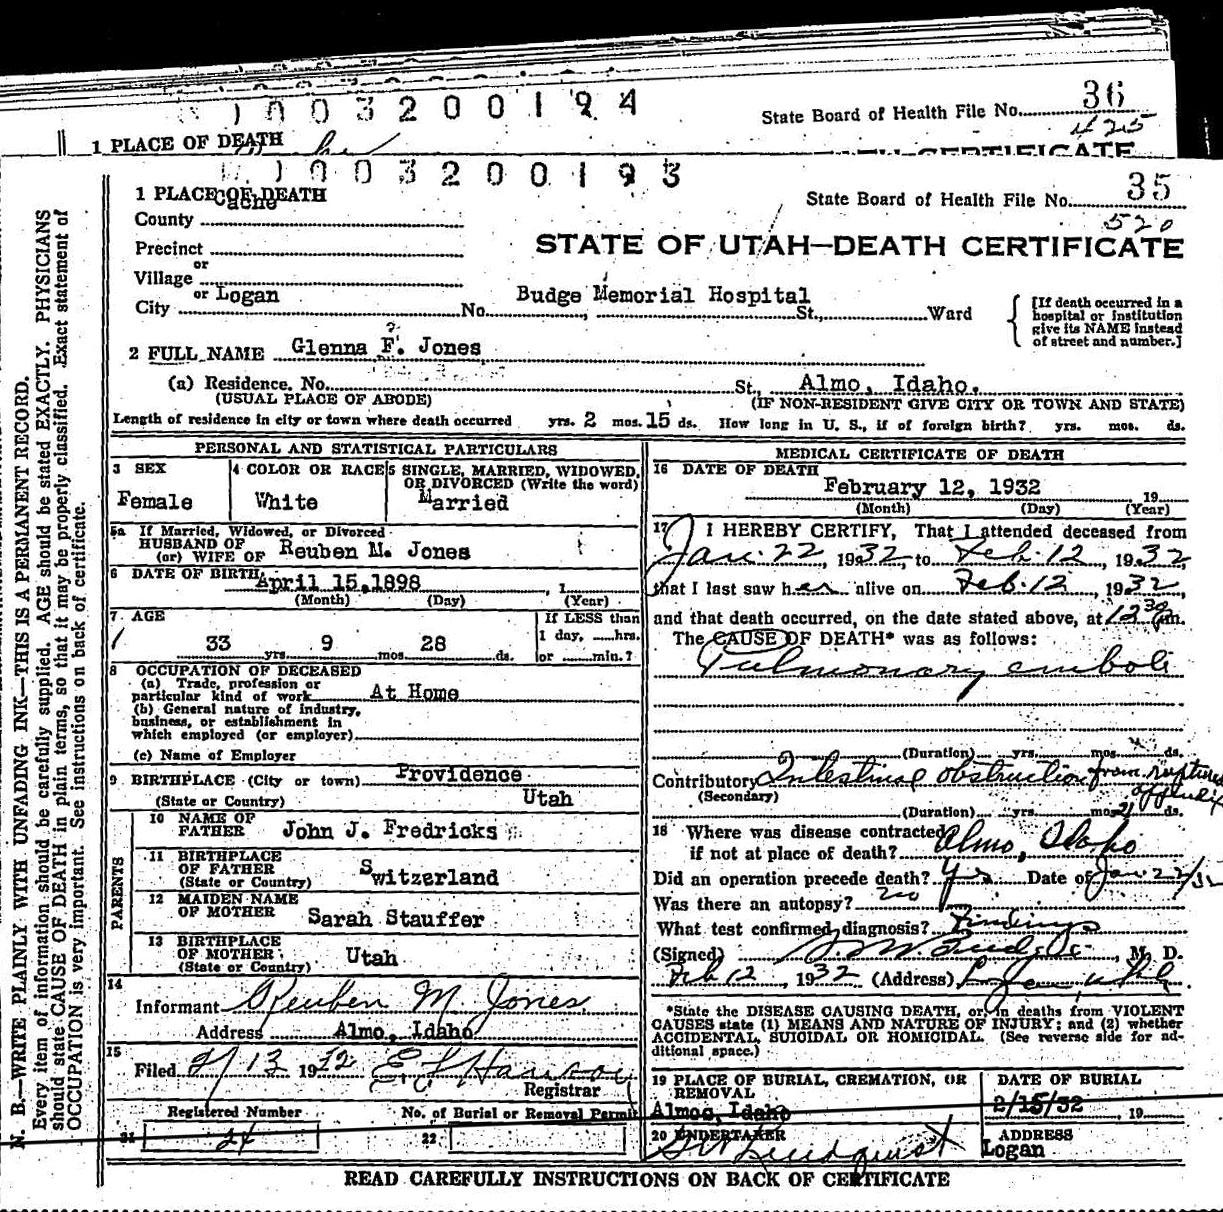 1003200194
State Board of Health File No. 36
425
1 PLACE OF DEATH
CERTIFICATE
1003200193
1 PLACE OF DEATH
State Board of Health File No. 35
520
Cache
County
STATE OF UTAH—DEATH CERTIFICATE
Precinct
or
Village
or
City Logan No. Budge Memorial Hospital St., Ward
[If death occurred in a
hospital or institution
give its NAME instead
of street and number.]
2 FULL NAME Glenna F. Jones
?
(a) Residence. No. St., Almo, Idaho.
(USUAL PLACE OF ABODE) (IF NON-RESIDENT GIVE CITY OR TOWN AND STATE)
Length of residence in city or town where death occurred yrs. 2 mos. 15 ds. How long in U. S., if of foreign birth? yrs. mos. ds.
PERSONAL AND STATISTICAL PARTICULARS
3 SEX
Female
4 COLOR OR RACE
White
5 SINGLE, MARRIED, WIDOWED,
OR DIVORCED (Write the word)
Married
5a If Married, Widowed, or Divorced
HUSBAND OF
(or) WIFE OF Reuben M. Jones
6 DATE OF BIRTH April 15, 1898 , 1
(Month) (Day) (Year)
7 AGE
33 yrs. 9 mos. 28 ds.
If LESS than
1 day, hrs.
or min.?
8 OCCUPATION OF DECEASED
(a) Trade, profession or
particular kind of work At Home
(b) General nature of industry,
business, or establishment in
which employed (or employer)
(c) Name of Employer
9 BIRTHPLACE (City or town) Providence
(State or Country) Utah
PARENTS
10 NAME OF
FATHER John J. Fredricks
11 BIRTHPLACE
OF FATHER
(State or Country) Switzerland
12 MAIDEN NAME
OF MOTHER Sarah Stauffer
13 BIRTHPLACE
OF MOTHER
(State or Country) Utah
14
Informant Reuben M. Jones.
Address Almo, Idaho
15
Filed 2/13 1932
Registrar
Registered Number No. of Burial or Removal Permit
21 24 22
MEDICAL CERTIFICATE OF DEATH
16 DATE OF DEATH
February 12, 1932 19
(Month) (Day) (Year)
17 I HEREBY CERTIFY, That I attended deceased from
Jan. 22, 1932, to Feb. 12, 1932,
that I last saw her alive on Feb. 12, 1932,
and that death occurred, on the date stated above, at 12 30 pm.
The CAUSE OF DEATH* was as follows:
Pulmonary emboli
(Duration) yrs. mos. ds.
Contributory Intestinal obstruction from ruptured
(Secondary) appendix
(Duration) yrs. mos. 21 ds.
18 Where was disease contracted
if not at place of death? Almo, Idaho
Did an operation precede death? Yes Date of Jan 22/32
Was there an autopsy? no
What test confirmed diagnosis? Findings
(Signed) Budge, M. D.
Feb 12, 1932 (Address) Logan, Utah.
*State the DISEASE CAUSING DEATH, or, in deaths from VIOLENT
CAUSES state (1) MEANS AND NATURE OF INJURY; and (2) whether
ACCIDENTAL, SUICIDAL OR HOMICIDAL. (See reverse side for ad-
ditional space.)
19 PLACE OF BURIAL, CREMATION, OR
REMOVAL
Almoo, Idaho
DATE OF BURIAL
2/15/32 19
20 UNDERTAKER
Lindquist
ADDRESS
Logan
READ CAREFULLY INSTRUCTIONS ON BACK OF CERTIFICATE
N. B.—WRITE PLAINLY WITH UNFADING INK—THIS IS A PERMANENT RECORD.
Every item of information should be carefully supplied. AGE should be stated EXACTLY. PHYSICIANS
should state CAUSE OF DEATH in plain terms, so that it may be properly classified. Exact statement of
OCCUPATION is very important. See instructions on back of certificate.